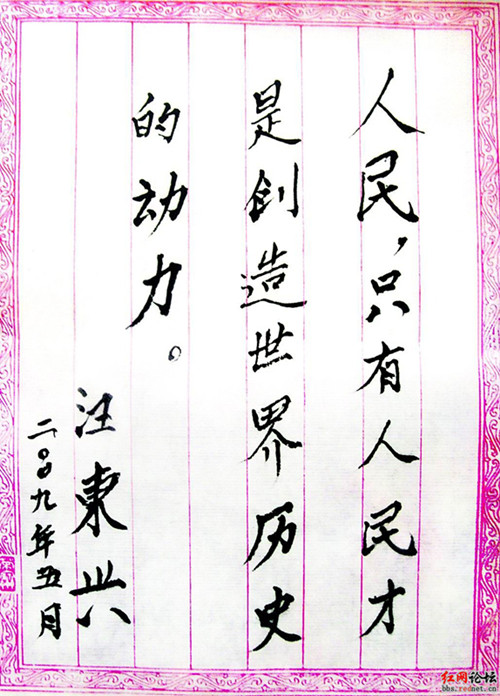 人民，只有人民才
是创造世界历史
的动力。
汪东兴
二〇〇九年五月
红网论坛
bbs.rednet.cn